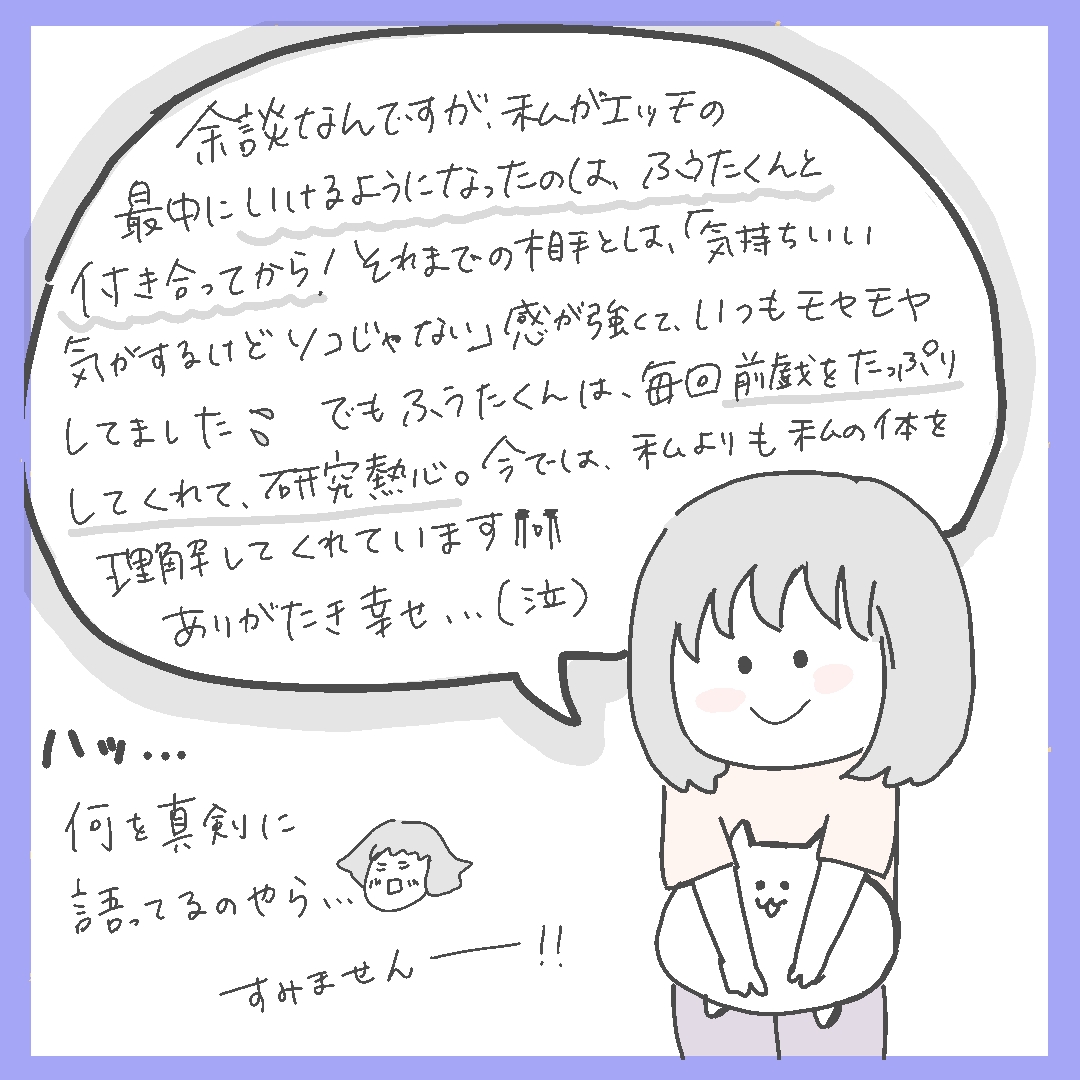 余談なんですが、私がエッチの
最中にいけるようになったのは、ふうたくんと
付き合ってから！それまでの相手とは、「気持ちいい
気がするけどソコじゃない」感が強くて、いつもモヤモヤ
してました でもふうたくんは、毎回前戯をたっぷり
してくれて、研究熱心。今では、私よりも私の体を
理解してくれています
ありがたき幸せ…(泣)
ハッ…
何を真剣に
語ってるのやら…
すみませんーー!!